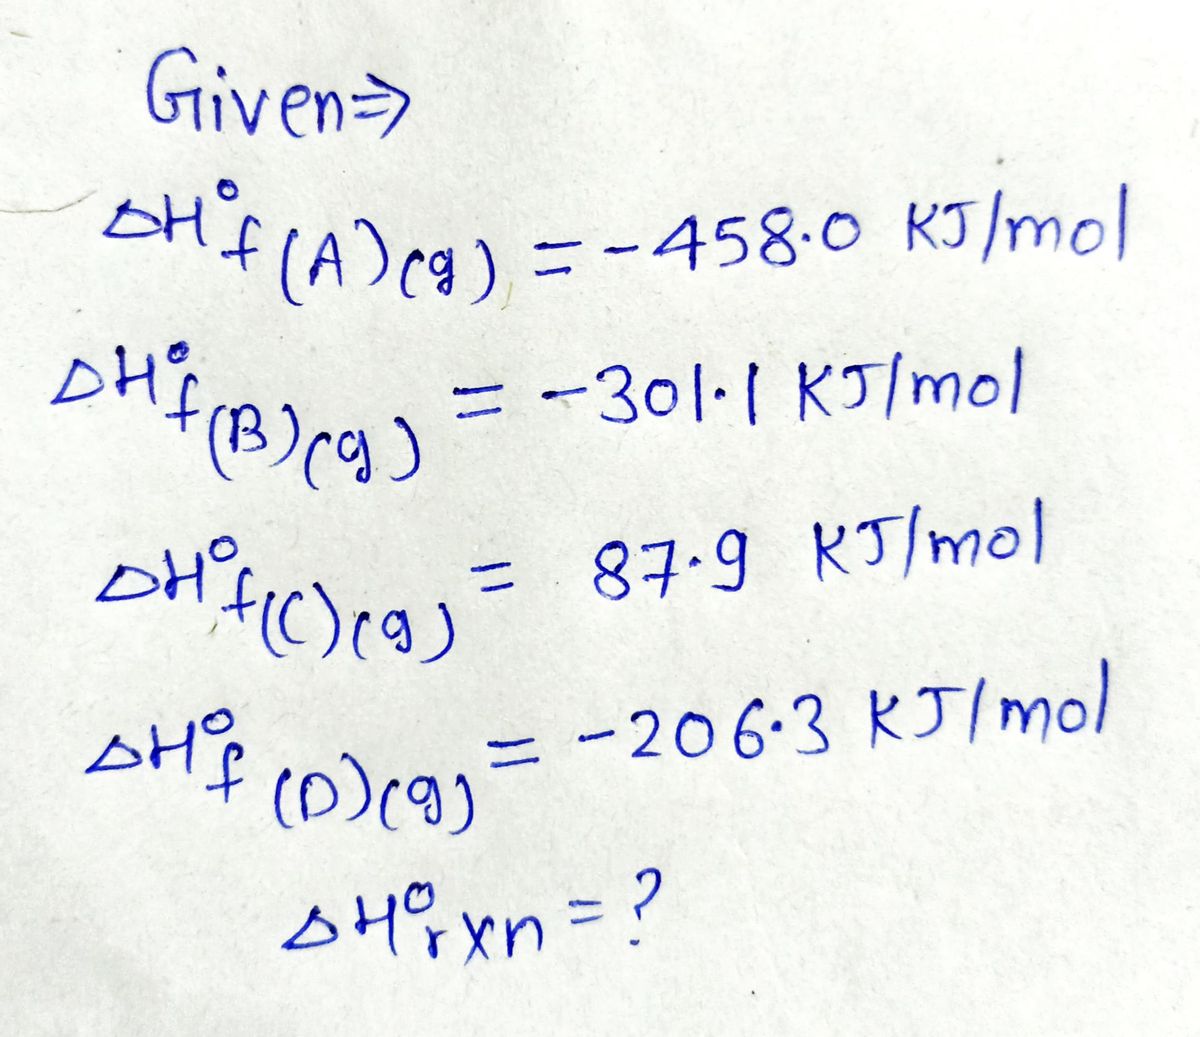 Given⇒
ΔH°f (A)(g) = -458.0 KJ/mol
ΔH°f (B)(g) = -301.1 KJ/mol
ΔH°f (C)(g) = 87.9 KJ/mol
ΔH°f (D)(g) = -206.3 KJ/mol
ΔH°rxn = ?